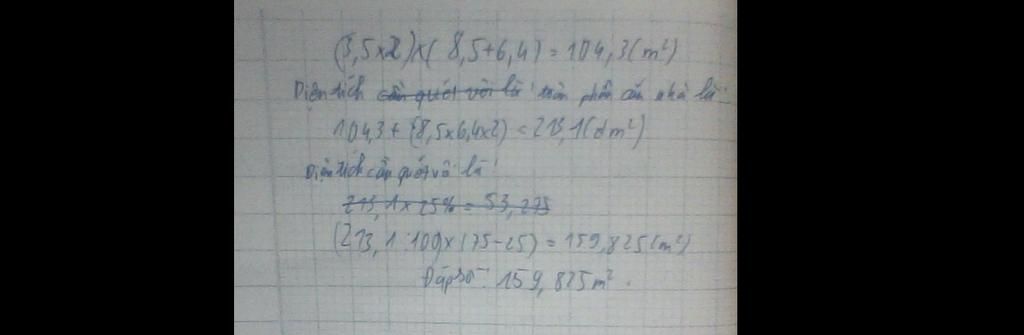 (3,5x2)x(8,5+6,4)=104,3(m²)
Diện tích cần quét vôi là toàn phần căn nhà là:
104,3+(8,5x6,4x2)=213,1(dm²)
Diện tích cần quét vôi là:
213,1x25%=53,275
(213,1:100)x(75-25)=159,825(m²)
Đáp số: 159,825m².